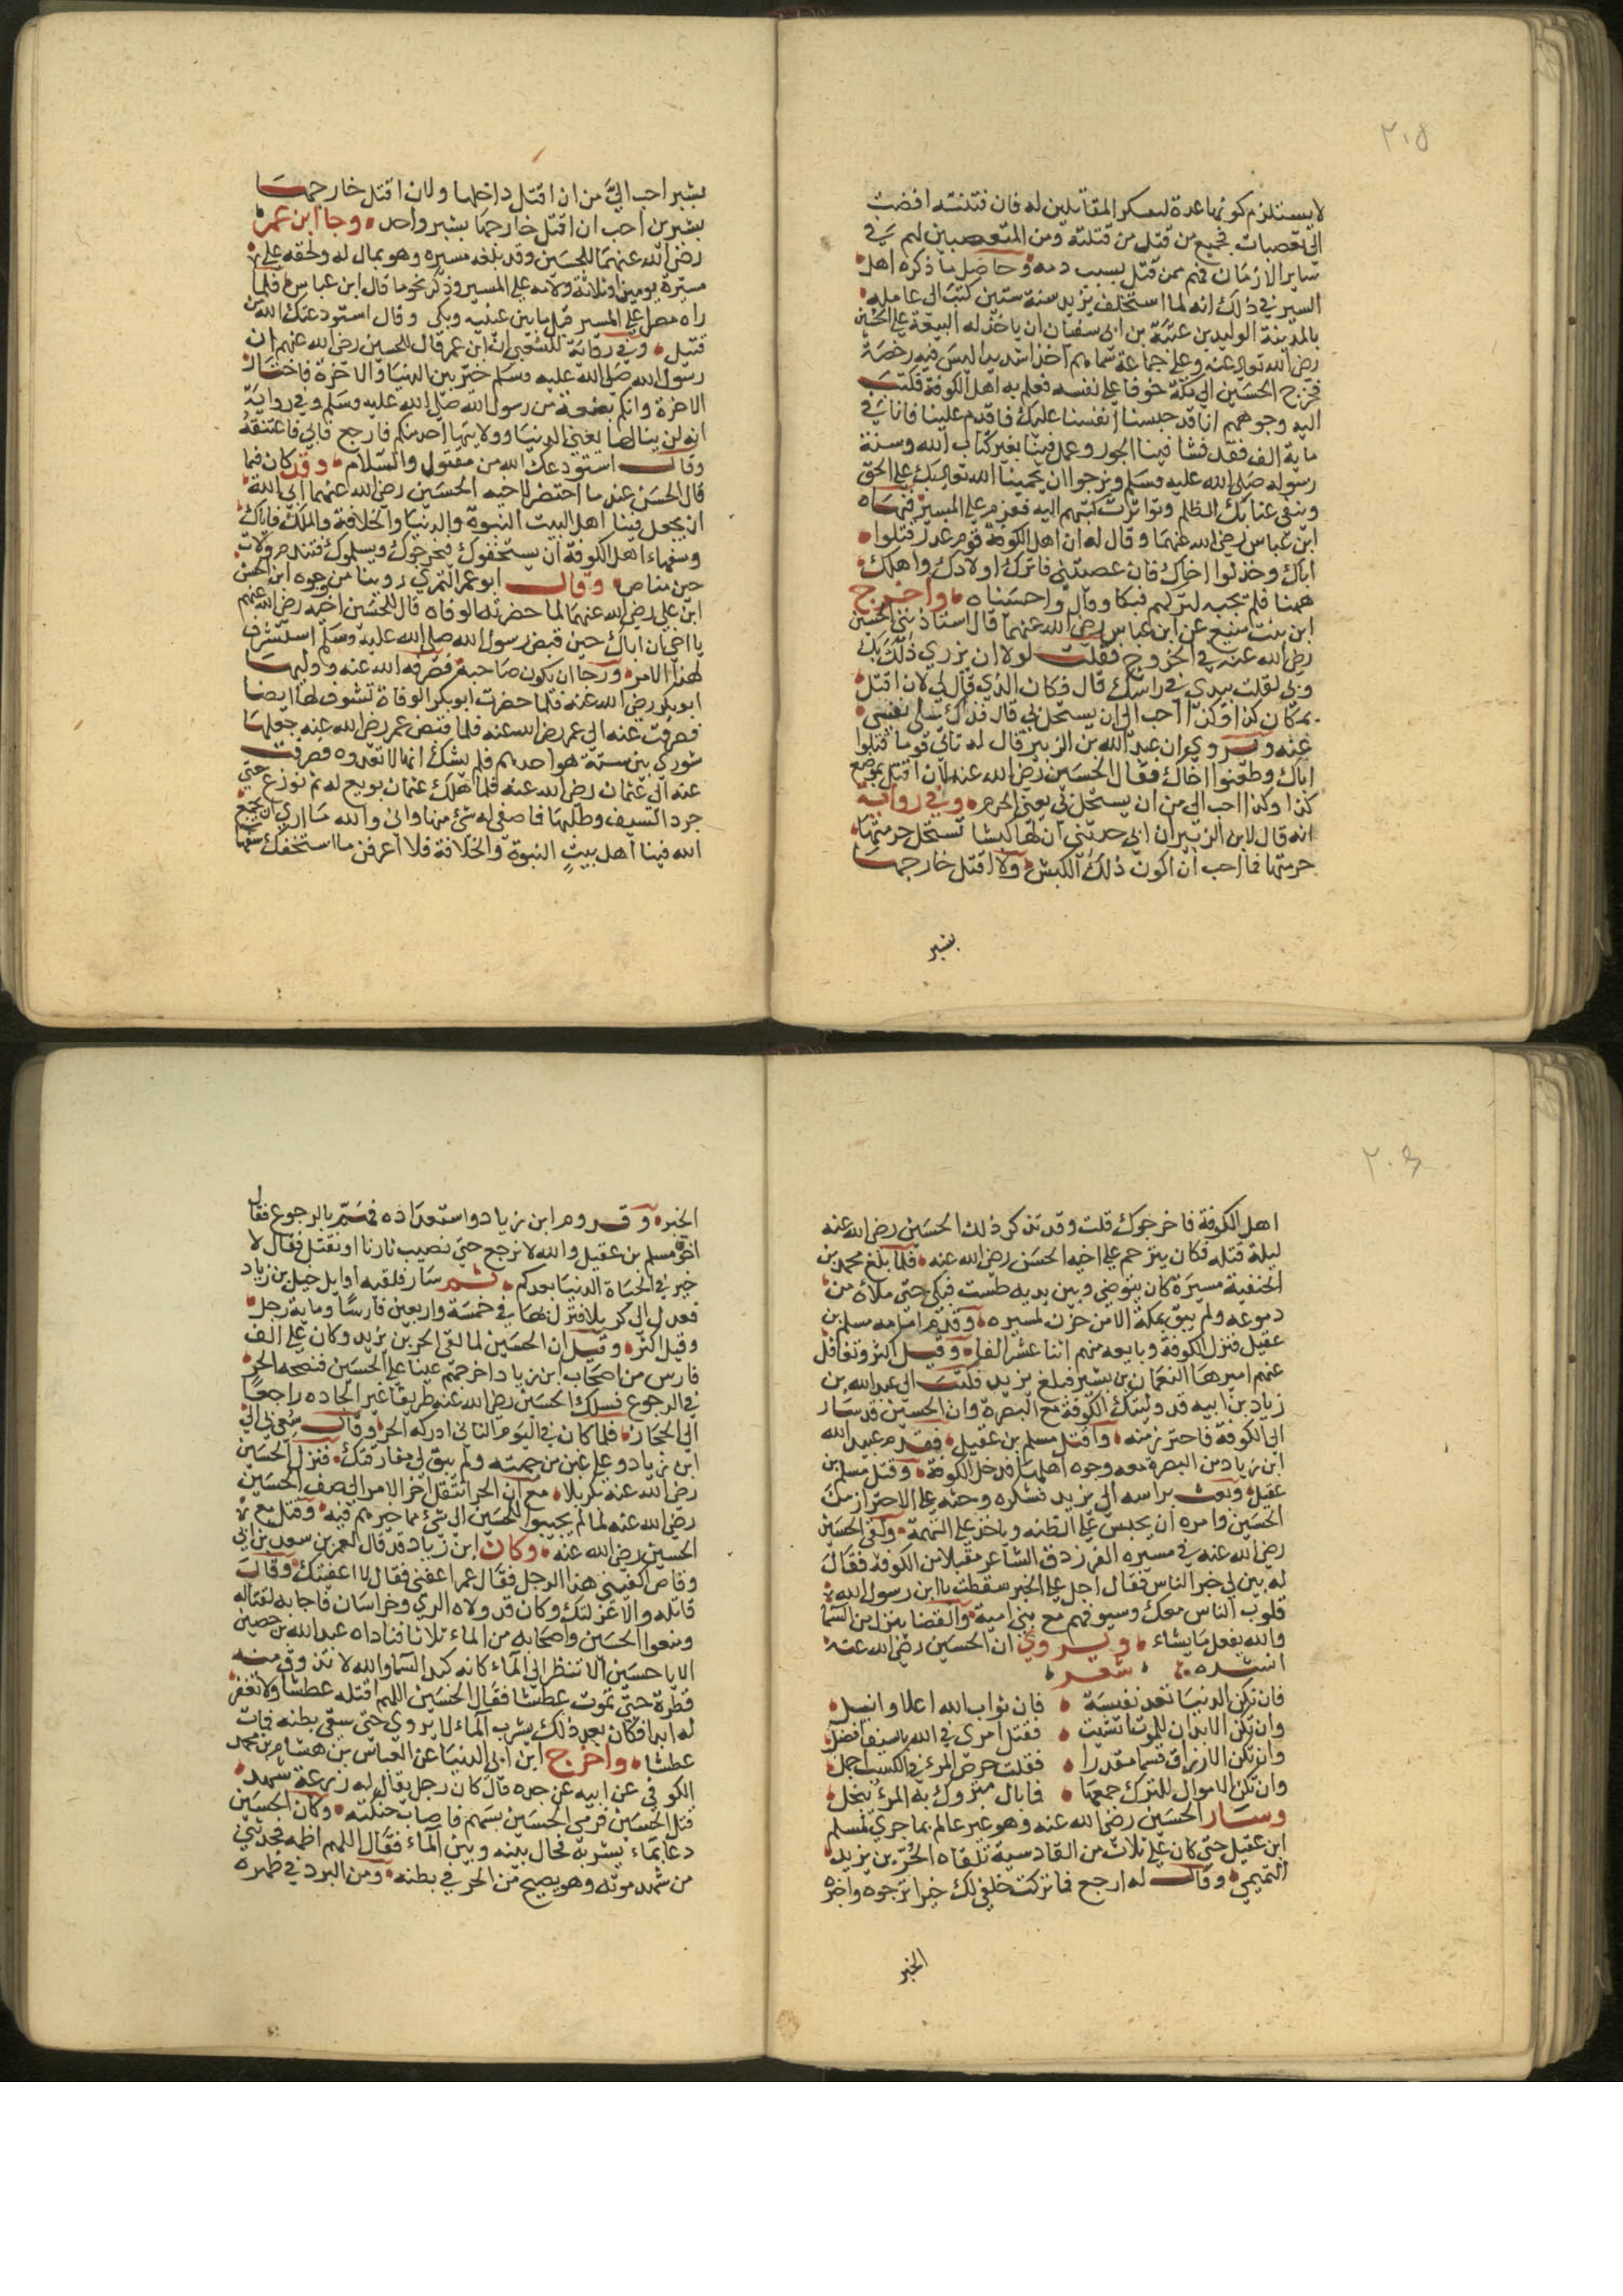 ٢٠٥
لا يستلزم كونها عدة لعسكر المقاتلين له فان فتنته افضت
الى تعصبات فجميع من قتل من قتلته ومن المتعصبين لهم في
ساير الازمان فهم ممن قتل بسبب دمه وحاصل ما ذكره اهل
السير في ذلك انه لما استخلف يزيد سنة ستين كتب الى عامله
بالمدينة الوليد بن عتبة بن ابي سفيان ان ياخذ له البيعة على الحسين
رضي الله تعالى عنه وعلى جماعة سماهم اخذا شديدا ليس فيه رخصة
فخرج الحسين الى مكة خوفا على نفسه فعلم به اهل الكوفة فكتب
اليه وجوههم انا قد حبسنا انفسنا عليك فاقدم علينا فانا في
ماية الف فقد فشا فينا الجور وعمل فينا بغير كتاب الله وسنة
رسوله صلى الله عليه وسلم ونرجوا ان يجمعنا الله تعالى بك على الحق
وينفي عنا بك الظلم وتواترت كتبهم اليه فعزم على المسير فنهاه
ابن عباس رضي الله عنهما وقال له ان اهل الكوفة قوم غدر قتلوا
اباك وخذلوا اخاك فان عصيتني فاترك اولادك واهلك
ههنا فلم يجبه لتركهم فبكا وقال واحسيناه واخرج
ابن بنت منيع عن ابن عباس رضي الله عنهما قال استاذنني الحسين
رضي الله عنه في الخروج فقلت لولا ان يزري ذلك بك
وبي لقلت بيدي في راسك قال فكان الذي قال لي لان اقتل
بمكان كذا وكذا احب الي ان يستحل بي قال فذلك سلى نفسي
عنه ويروى ان عبد الله بن الزبير قال له تاتي قوما قتلوا
اباك وطعنوا اخاك فقال الحسين رضي الله عنه لان اقتل بموضع
كذا وكذا احب الي من ان يستحل بي يعني الحرم وفي رواية
انه قال لابن الزبير ان ابي حدثني ان لها كبشا تستحل حرمتها
حرمتها فما احب ان اكون ذلك الكبش ولا اقتل خارجها
بشبر
بشبر احب الي من ان اقتل داخلها ولان اقتل خارجها
بشبرين احب ان اقتل خارجها بشبر واحد وجا ابن عمر
رضي الله عنهما للحسين وقد بلغه مسيره وهو بمال له ولحقه على
مسيرة يومين او ثلاثة ولامه على المسير وذكر نحو ما قال ابن عباس فلما
راه مصر على المسير قبل ما بين عينيه وبكى وقال استودعتك الله من
قتيل وفي رواية للشعبي ان ابن عمر قال للحسين رضي الله عنهم ان
رسول الله صلى الله عليه وسلم خير بين الدنيا والاخرة فاختار
الاخرة وانكم بضعة من رسول الله صلى الله عليه وسلم وفي رواية
انه لن ينالها يعني الدنيا وولايتها احد منكم فارجع فابى فاعتنقه
وقال استودعك الله من مقتول والسلام وقد كان فيما
قال الحسن عند ما احتضر لاخيه الحسين رضي الله عنهما ابى الله
ان يجعل فينا اهل البيت النبوة والدنيا والخلافة والملك فاياك
وسفهاء اهل الكوفة ان يستخفوك فيخرجوك ويسلموك فتندم ولات
حين مناص وقال ابو عمر النمري روينا من وجوه ان الحسن
ابن علي رضي الله عنهما لما حضرته الوفاه قال للحسين اخيه رضي الله عنهم
يا اخي ان اباك حين قبض رسول الله صلى الله عليه وسلم استشرف
لهذا الامر ورجا ان يكون صاحبه فصرفه الله عنه ووليها
ابو بكر رضي الله عنه فلما حضرت ابو بكر الوفاة تشوف لها ايضا
فصرفت عنه الى عمر رضي الله عنه فلما قبض عمر رضي الله عنه جعلها
شورى بين ستة هو احدهم فلم يشك انها لا تعدوه فصرفت
عنه الى عثمان رضي الله عنه فلما هلك عثمان بويع له ثم نوزع حتى
جرد السيف وطلبها فما صفى له شئ منها واني والله ما ارى ان يجمع
الله فينا اهل بيت النبوة والخلافة فلا اعرفن ما استخفك سفها
٢٠٤
اهل الكوفة فاخرجوك قلت وقد تذكر ذلك الحسين رضي الله عنه
ليلة قتله فكان يترحم على اخيه الحسن رضي الله عنه فلما بلغ محمد بن
الحنفية مسيرة كان يتوضي وبين يديه طست فبكى حتى ملأه من
دموعه ولم يبق بمكة الا من حزن لمسيره وقدم امامه مسلم بن
عقيل فنزل الكوفة وبايعه منهم اثنا عشر الفا وقيل اكثر وتغافل
عنهم اميرها النعمان بن بشير فبلغ يزيد فكتب الى عبد الله بن
زياد بن ابيه قد وليتك الكوفة مع البصرة وان الحسين قد سار
الى الكوفة فاحترز منه واقتل مسلم بن عقيل فقدم عبيد الله
ابن زياد من البصرة معه وجوه اهلها فدخل الكوفة وقتل مسلم بن
عقيل وبعث براسه الى يزيد فشكره وحثه على الاحتراز من
الحسين وامره ان يحبس على الظنه وياخذ على التهمة ولقى الحسين
رضي الله عنه في مسيره الفرزدق الشاعر مقبلا من الكوفة فقال
له بين لي خبر الناس فقال اجل على الخبير سقطت يا ابن رسول الله
قلوب الناس معك وسيوفهم مع بني امية والقضا ينزل من السما
والله يفعل ما يشاء ويروى ان الحسين رضي الله عنه
انشده شعر
فان تكن الدنيا تعد نفيسة فان ثواب الله اعلا وانبل
وان تكن الابدان للموت انشئت فقتل امرئ في الله بالسيف افضل
وان تكن الارزاق قسما مقدرا فقلت حرص المرء في الكسب اجمل
وان تكن الاموال للترك جمعها فما بال متروك به المرء يبخل
وسار الحسين رضي الله عنه وهو غير عالم بما جرى لمسلم
ابن عقيل حتى كان على ثلاث من القادسية تلقاه الحر بن يزيد
التميمي وقال له ارجع فما تركت خلفي لك خيرا ترجوه واخبره
الخبر
الخبر وقدوم ابن زياد واستعداده فهم بالرجوع فقال
اخوه مسلم بن عقيل والله لا نرجع حتى نصيب ثارنا او نقتل فقال لا
خير في الحياة الدنيا بعدكم ثم سار فلقيه اوايل خيل بن زياد
فعدل الى كربلا فنزل بها في خمسة واربعين فارسا وماية رجل
وقيل اكثر وقيل ان الحسين لما لقى الحر بن يزيد وكان على الف
فارس من اصحاب ابن زياد اخرجهم عينا على الحسين فنصحه الحر
في الرجوع فسلك الحسين رضي الله عنه طريقا غير الجاده راجعا
الى الحجاز فلما كان في اليوم الثاني ادركه الحر وقال سعى بي الى
ابن زياد وعلي عين من جهته ولم يبق لي مفارقتك فنزل الحسين
رضي الله عنه بكربلا مع ان الحر انتقل اخر الامر الى صف الحسين
رضي الله عنه لما لم يجيبوا الحسين الى شئ مما خيرهم فيه وقتل مع
الحسين رضي الله عنه وكان ابن زياد قد قال لعمر بن سعد بن ابي
وقاص اكفيني هذا الرجل فقال عمر اعفني فقال لا اعفيتك وقال
قاتله والا عزلتك وكان قد ولاه الري وخراسان فاجابه لقتاله
ومنعوا الحسين واصحابه من الماء ثلاثا فناداه عبد الله بن حصين
الا يا حسين الا تنظر الى الماء كانه كبد السما والله لا تذوق منه
قطرة حتى تموت عطشا فقال الحسين اللهم اقتله عطشا ولا تغفر
له ابدا فكان بعد ذلك يشرب الماء لا يروى حتى سقى بطنه فمات
عطشا واخرج ابن ابي الدنيا عن العباس بن هشام بن محمد
الكوفي عن ابيه عن جده قال كان رجل يقال له زرعة شهد
قتل الحسين فرمى الحسين بسهم فاصاب حنكته وكان الحسين
دعا بماء يشربه فحال بينه وبين الماء فقال اللهم اظمه فحدثني
من شهد موته وهو يصيح من الحر في بطنه ومن البرد في ظهره